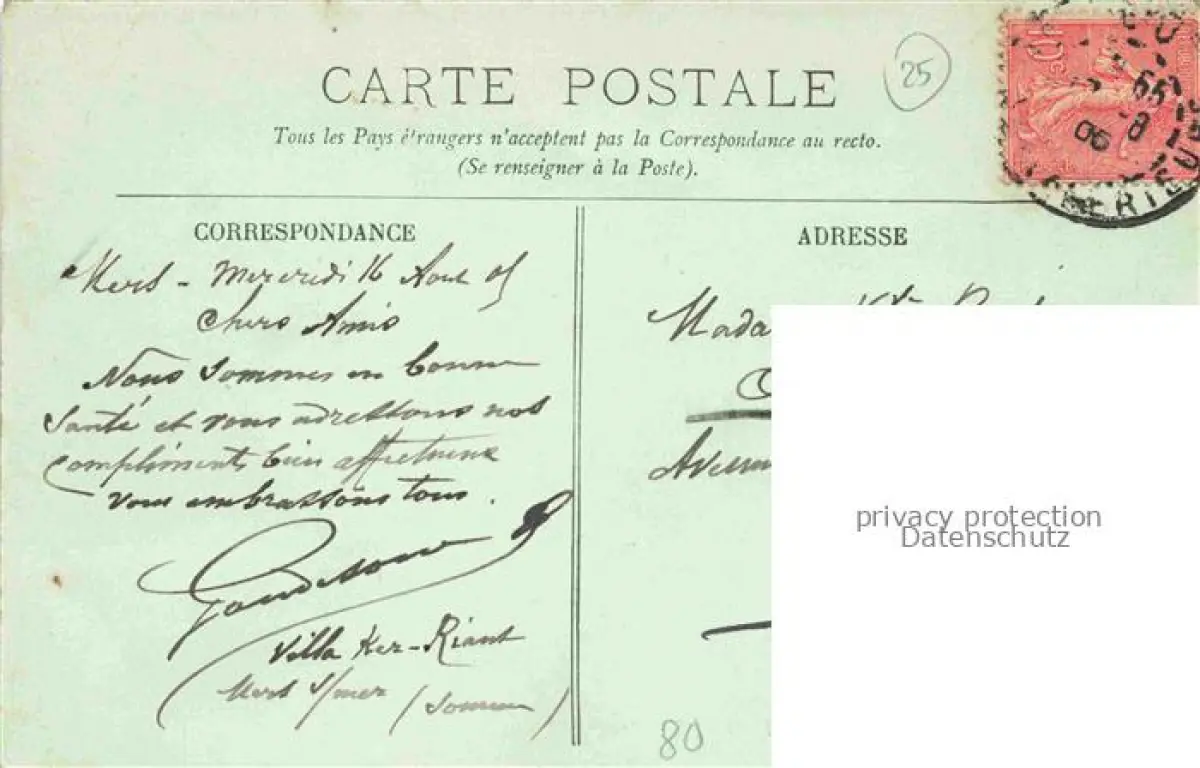 CARTE POSTALE
25
Tous les Pays étrangers n'acceptent pas la Correspondance au recto.
(Se renseigner à la Poste).
CORRESPONDANCE
Mers - Mercredi 16 Aout 05
Chers Amis
Nous sommes en bonne
Santé et vous adressons nos
compliments bien affectueux
vous embrassons tous.
Villa Ker-Riant
Mers s/mer (Somme)
80
ADRESSE
Mada
privacy protection
Datenschutz